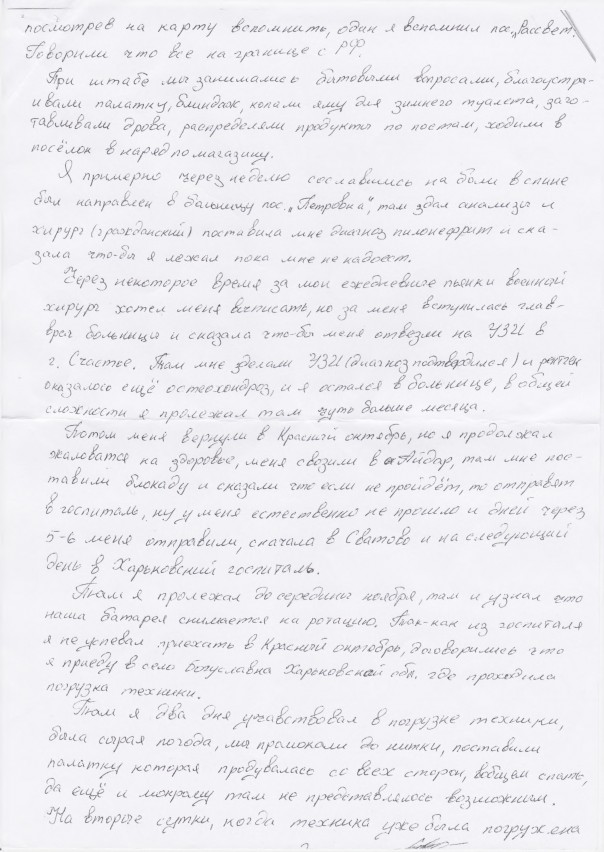 посмотрев на карту вспомнить, один я вспомнил пос. „Рассвет".
Говорили что все на границе с РФ.
При штабе мы занимались бытовыми вопросами, благоустра-
ивали палатку, блиндаж, копали яму для зимнего туалета, заго-
тавливали дрова, распределяли продукты по постам, ходили в
посёлок в наряд по магазину.
Я примерно через неделю сославшись на боли в спине
был направлен в больницу пос. „Петровка", там здал анализы и
хирург (гражданский) поставила мне диагноз пилонефрит и ска-
зала что-бы я лежал пока мне не надоест.
Через некоторое время за мои ежедневные пьянки военной
хирург хотел меня выписать, но за меня вступилась глав-
врач больницы и сказала что-бы меня отвезли на УЗИ в
г. Счастье. Там мне зделали УЗИ (диагноз подтвердился) и рентген
оказалось ещё остеохондроз, и я остался в больнице, в общей
сложности я пролежал там чуть больше месяца.
Потом меня вернули в Красный октябрь, но я продолжал
жаловатся на здоровье, меня свозили в Айдар, там мне пос-
тавили блокаду и сказали что если не пройдёт, то отправят
в госпиталь, ну у меня естественно не прошло и дней через
5-6 меня отправили, сначала в Сватово и на следующий
день в Харьковский госпиталь.
Там я пролежал до середины ноября, там и узнал что
наша батарея снимается на ротацию. Так-как из госпиталя
я не успевал приехать в Красный октябрь, договорились что
я приеду в село Богуславка Харьковской обл. где проходила
погрузка техники.
Там я два дня учавствовал в погрузке техники,
была сырая погода, мы промокали до нитки, поставили
палатку которая продувалась со всех сторон, вобщем спать,
да ещё и мокрому там не представлялось возможным.
На вторые сутки, когда техника уже была погружена